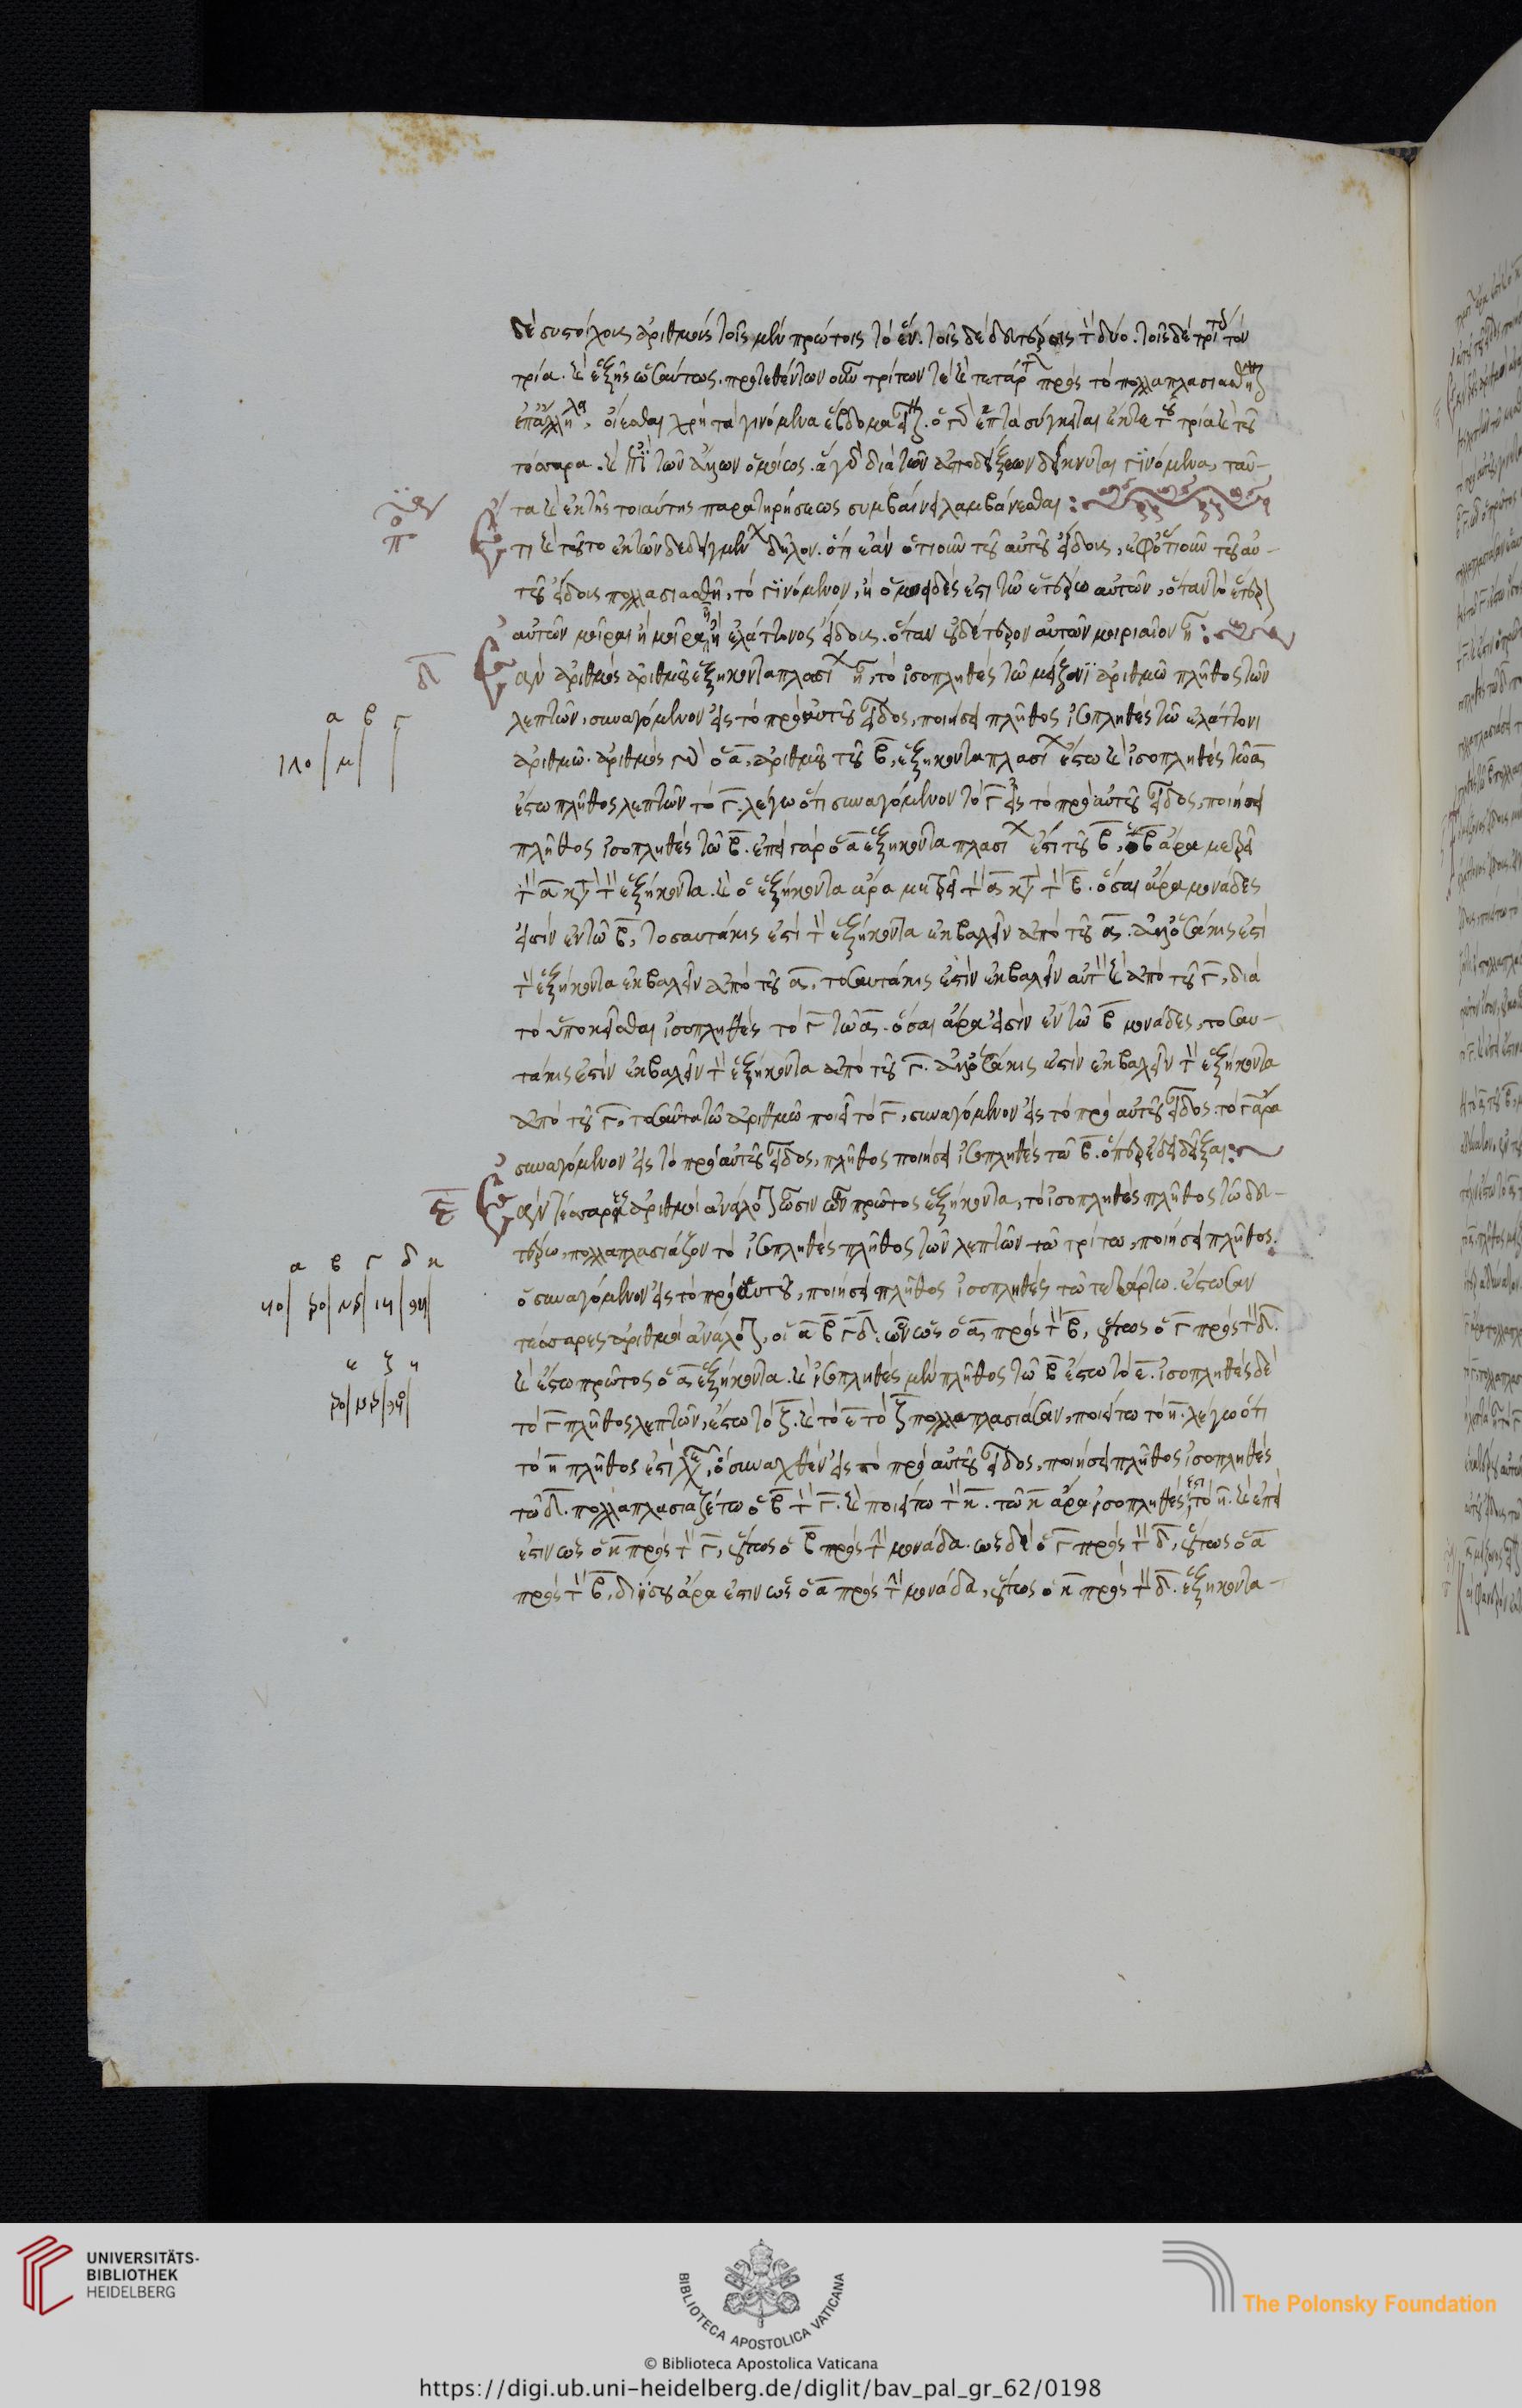 δὲ συστοίχοις ἀριθμοῖς τοῖς μὲν πρώτοις τὸ ἕν. τοῖς δὲ δευτέροις τὸν δύο. τοῖς δὲ τρίτοις τὸν
τρία. καὶ ἑξῆς ὡσαύτως. προστεθέντων οὖν τρίτων τὲ καὶ τετάρτων πρὸς τὸ πολλαπλασιασθῆναι
ἐπάλληλα, οἴεσθαι χρὴ τὰ γινόμενα ἕβδομα εἶναι. ὁ γὰρ ἑπτὰ σύγκειται ἔκ τε τοῦ τρία καὶ τοῦ
τέσσαρα. καὶ ἐπὶ τῶν ἄλλων ὁμοίως. ἃ γὰρ διὰ τῶν ἀποδείξεων δείκνυται γινόμενα, ταῦ-
τα καὶ ἐκ τῆς τοιαύτης παρατηρήσεως συμβαίνει λαμβάνεσθαι:
ἔτι καὶ τοῦτο ἐκ τῶν δεδειγμένων δῆλον. ὅτι ἐὰν ὁτιοῦν τοῦ αὐτοῦ εἴδους, ἐφ' ὁτιοῦν τοῦ αὐ-
τοῦ εἴδους πολλασιασθῆ, τὸ γινόμενον, ἢ ὁμοειδές ἐστι τῶ ἑτέρω αὐτῶν, ὅταν τὸ ἕτερον
αὐτῶν μοῖραι ἢ μοῖρα ἢ, ἢ ἐλάττονος εἴδους. ὅταν οὐδέτερον αὐτῶν μοιριαῖον ἦ:
δ
ἐὰν ἀριθμὸς ἀριθμοῦ ἑξηκονταπλάσιος ἦ, τὸ ἰσοπληθὲς τῶ μείζονι ἀριθμῶ πλῆθος τῶν
λεπτῶν, συναγόμενον εἰς τὸ πρὸ αὐτοῦ εἶδος, ποιήσει πλῆθος ἰσοπληθὲς τῶ ἐλάττονι
α β γ
ἀριθμῶ. ἀριθμὸς γὰρ ὁ α, ἀριθμοῦ τοῦ β, ἑξηκονταπλάσιος ἔστω καὶ ἰσοπληθὲς τῶ α
ἔστω πλῆθος λεπτῶν τὸ γ. λέγω ὅτι συναγόμενον τὸ γ εἰς τὸ πρὸ αὐτοῦ εἶδος, ποιήσει
πλῆθος ἰσοπληθὲς τῶ β. ἐπεὶ γὰρ ὁ α ἑξηκονταπλάσιος ἐστὶ τοῦ β, ὁ β ἄρα μετρεῖ
τὸν α κατὰ τὸν ἑξήκοντα. καὶ ὁ ἑξήκοντα ἄρα μετρεῖ τὸν α κατὰ τὸν β. ὅσαι ἄρα μονάδες
εἰσὶν ἐν τῶ β, τοσαυτάκις ἐστὶ τὸν ἑξήκοντα ἐκβαλεῖν ἀπὸ τοῦ α. ἀλλ' ὁσάκις ἐστὶ
τὸν ἑξήκοντα ἐκβαλεῖν ἀπὸ τοῦ α, τοσαυτάκις ἐστὶν ἐκβαλεῖν αὐτὸν καὶ ἀπὸ τοῦ γ, διὰ
τὸ ὑποκεῖσθαι ἰσοπληθὲς τὸ γ τῶ α. ὅσαι ἄρα εἰσὶν ἐν τῶ β μονάδες, τοσαυ-
τάκις ἐστὶν ἐκβαλεῖν τὸν ἑξήκοντα ἀπὸ τοῦ γ. ἀλλ' ὁσάκις ἐστὶν ἐκβαλεῖν τὸν ἑξήκοντα
ἀπὸ τοῦ γ, τοσαῦτα τῶ ἀριθμῶ ποιεῖ τὸ γ, συναγόμενον εἰς τὸ πρὸ αὐτοῦ εἶδος. τὸ γ ἄρα
συναγόμενον εἰς τὸ πρὸ αὐτοῦ εἶδος, πλῆθος ποιήσει ἰσοπληθὲς τῶ β. ὅπερ ἔδει δεῖξαι:
ε
ἐὰν τέσσαρες ἀριθμοὶ ἀνάλογον ὦσιν ὧν πρῶτος ἑξήκοντα, τὸ ἰσοπληθὲς πλῆθος τῶ δευ-
τέρω, πολλαπλασιάζον τὸ ἰσοπληθὲς πλῆθος τῶν λεπτῶν τῶ τρίτω, ποιήσει πλῆθος.
α β γ δ κ
ὃ συναγόμενον εἰς τὸ πρὸ αὐτοῦ, ποιήσει πλῆθος ἰσοπληθὲς τῶ τετάρτω. ἔστωσαν
τέσσαρες ἀριθμοὶ ἀνάλογον, οἱ α β γ δ. ὧν ὡς ὁ α πρὸς τὸν β, οὕτως ὁ γ πρὸς τὸν δ.
καὶ ἔστω πρῶτος ὁ α ἑξήκοντα. καὶ ἰσοπληθὲς μὲν πλῆθος τῶ β ἔστω τὸ ε. ἰσοπληθὲς δὲ
ε ζ η
τὸ γ πλῆθος λεπτῶν, ἔστω τὸ ζ. καὶ τὸ ε τὸ ζ πολλαπλασιάσαν, ποιείτω τὸ η. λέγω ὅτι
τὸ η πλῆθος ἐστὶ λεπτῶν, ὃ συναχθὲν εἰς τὸ πρὸ αὐτοῦ εἶδος, ποιήσει πλῆθος ἰσοπληθὲς
τῶ δ. πολλαπλασιαζέτω ὁ β τὸν γ. καὶ ποιείτω τὸν κ. τῶ κ ἄρα ἰσοπληθές ἐστι τὸ η. καὶ ἐπεί
ἐστιν ὡς ὁ κ πρὸς τὸν γ, οὕτως ὁ β πρὸς τὴν μονάδα. ὡς δὲ ὁ γ πρὸς τὸν δ, οὕτως ὁ α
πρὸς τὸν β, διΐσου ἄρα ἐστὶν ὡς ὁ α πρὸς τὴν μονάδα, οὕτως ὁ κ πρὸς τὸν δ. ἑξηκοντα-
UNIVERSITÄTS-
BIBLIOTHEK
HEIDELBERG
BIBLIOTECA APOSTOLICA VATICANA
The Polonsky Foundation
© Biblioteca Apostolica Vaticana
https://digi.ub.uni-heidelberg.de/diglit/bav_pal_gr_62/0198